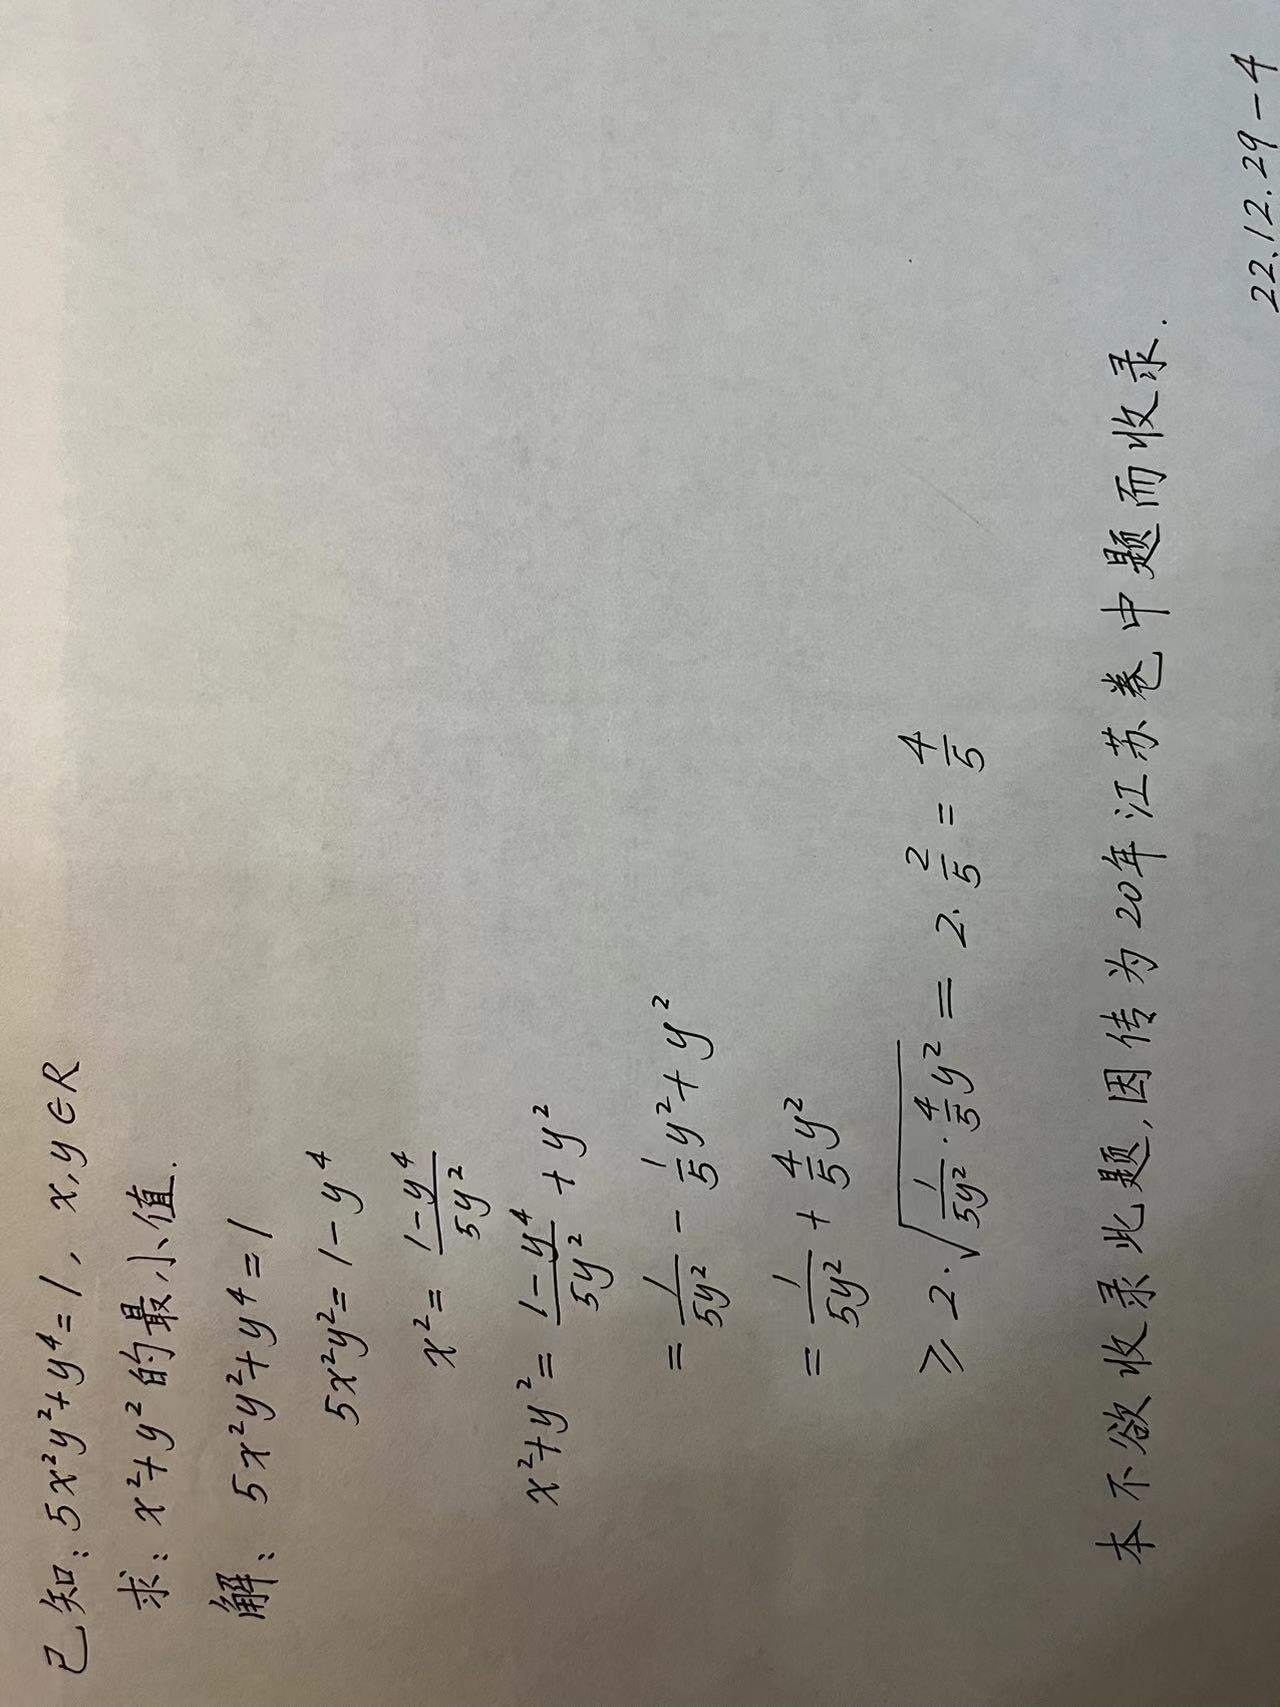 已知: 5x²y²+y⁴=1, x,y∈R
求: x²+y²的最小值.
解: 5x²y²+y⁴=1
5x²y²=1-y⁴
x²=(1-y⁴)/(5y²)
x²+y²=(1-y⁴)/(5y²)+y²
=1/(5y²)-1/5y²+y²
=1/(5y²)+4/5y²
≥2·√(1/(5y²)·4/5y²)=2·2/5=4/5
本不欲收录此题,因传为20年江苏卷中题而收录.
22.12.29-4